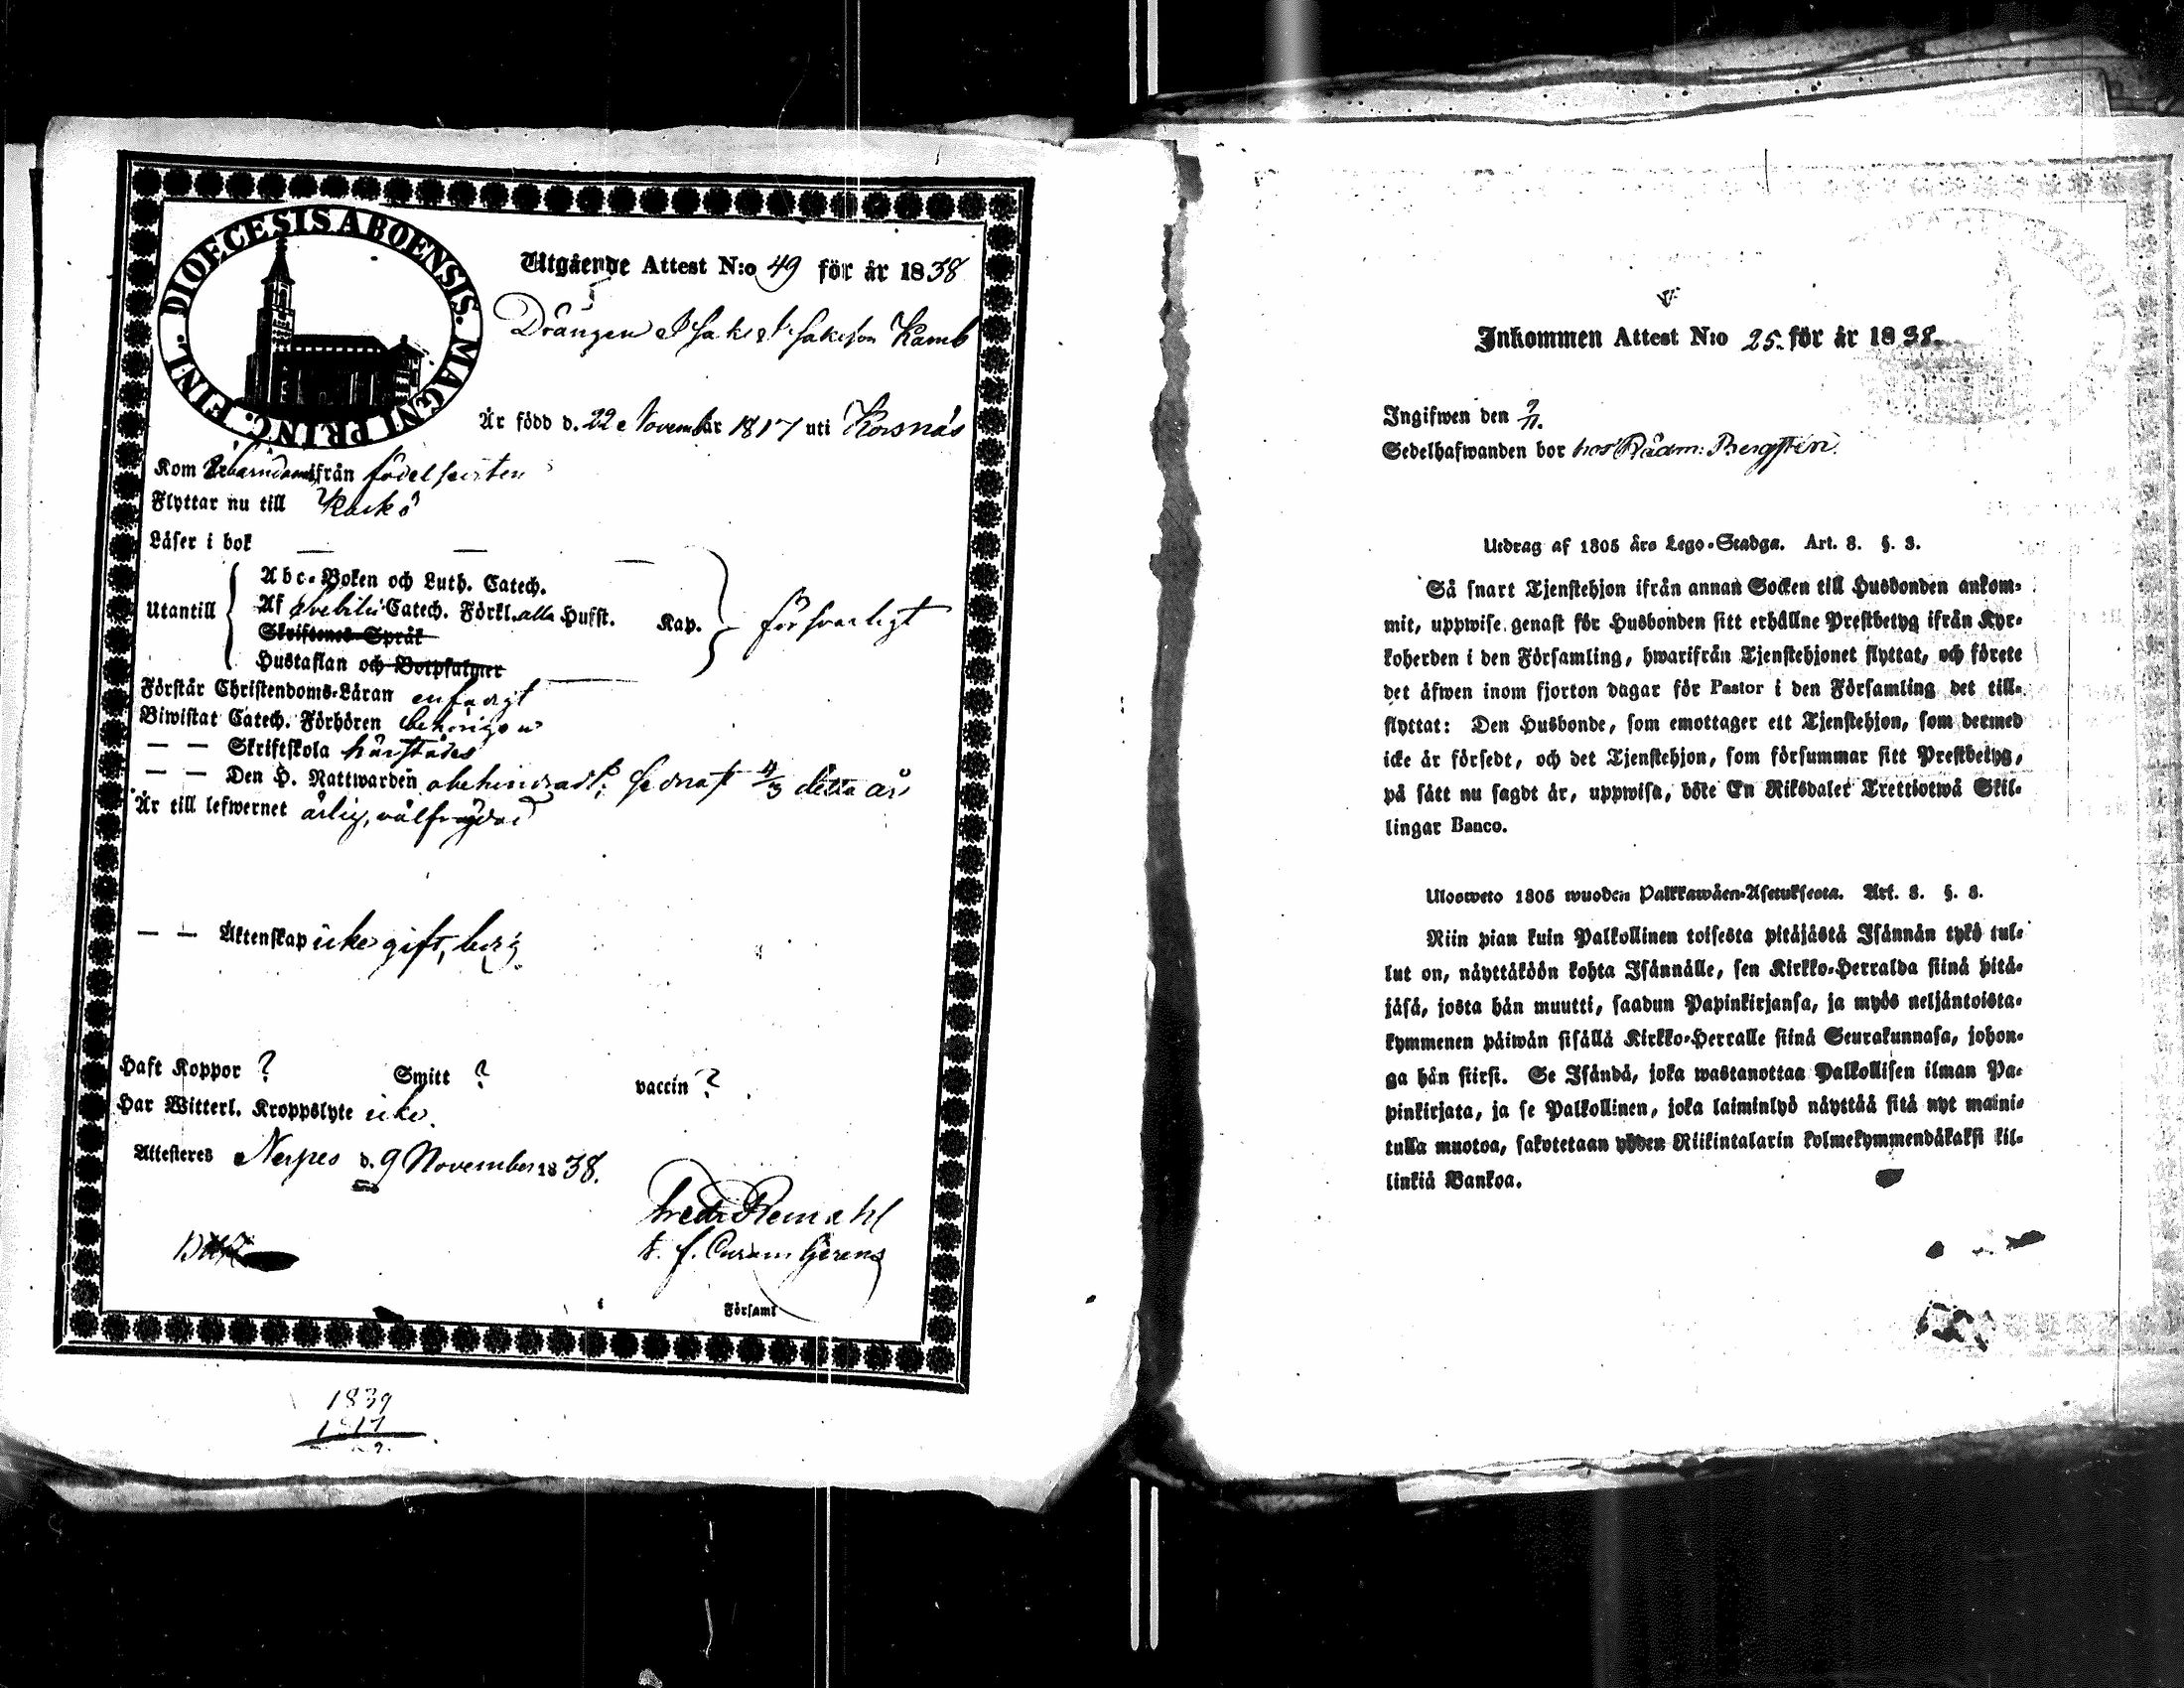 DIOECESIS ABOENSIS. MAGNI PRINC. FINL.
Utgående Attest N:o 49 för år 1838
Drängen Isak Isaksson Kamb
Är född d. 22 November 1817 uti Korsnäs
Kom barndom ifrån födelseorten
Flyttar nu till Kaskö
Läser i bok — — —
Utantill
Abc-Boken och Luth. Catech.
Af Svebilii Catech. Förkl. alla Husst. Kap.
försvarligt
Skriftenes Språk
Hustaflan och Botpsalmer
Förstår Christendoms-Läran enfaldigt
Biwistat Catech. Förhören behörigen
— — Skriftskola härstädes
— — Den H. Nattwarden obehindradt; senast 4/3 detta år
Är till lefwernet ärlig, välfrägdad
— — Äktenskap icke gift, ledig
Haft Koppor ? Smitt ? vaccin ?
Har Witterl. Kroppslyte icke.
Attesteras Nerpes d. 9 November 1838.
Fredr. Remahl
t. f. Curam Gerens
Församl
1839
1817
Inkommen Attest N:o 25. för år 1838.
Ingifwen den 9/11.
Sedelhafwanden bor hos Rådm: Bergsten.
Utdrag af 1805 års Lego-Stadga. Art. 8. §. 3.
Så snart Tjenstehjon ifrån annan Socken till Husbonden ankom-
mit, uppwise genast för Husbonden sitt erhållne Prestbetyg ifrån Kyr-
koherden i den Församling, hwarifrån Tjenstehjonet flyttat, och förete
det äfwen inom fjorton dagar för Pastor i den Församling det till-
flyttat: Den Husbonde, som emottager ett Tjenstehjon, som dermed
icke är försedt, och det Tjenstehjon, som försummar sitt Prestbetyg,
på sätt nu sagdt är, uppwisa, böte En Riksdaler Trettiotwå Skil-
lingar Banco.
Ulosweto 1805 wuoden Palkkawäen-Asetuksesta. Art. 8. §. 3.
Niin pian kuin Palkollinen toisesta pitäjästä Isännän tykö tul-
lut on, näyttäköön kohta Isännälle, sen Kirkko-Herralda siinä pitä-
jäsä, josta hän muutti, saadun Papinkirjansa, ja myös neljäntoista-
kymmenen päiwän sisällä Kirkko-Herralle siinä Seurakunnasa, johon-
ga hän siirsi. Se Isändä, joka wastanottaa Palkollisen ilman Pa-
pinkirjata, ja se Palkollinen, joka laiminlyö näyttää sitä nyt maini-
tulla muotoa, sakotetaan yhden Riikintalarin kolmekymmendäkaksi kil-
linkiä Bankoa.